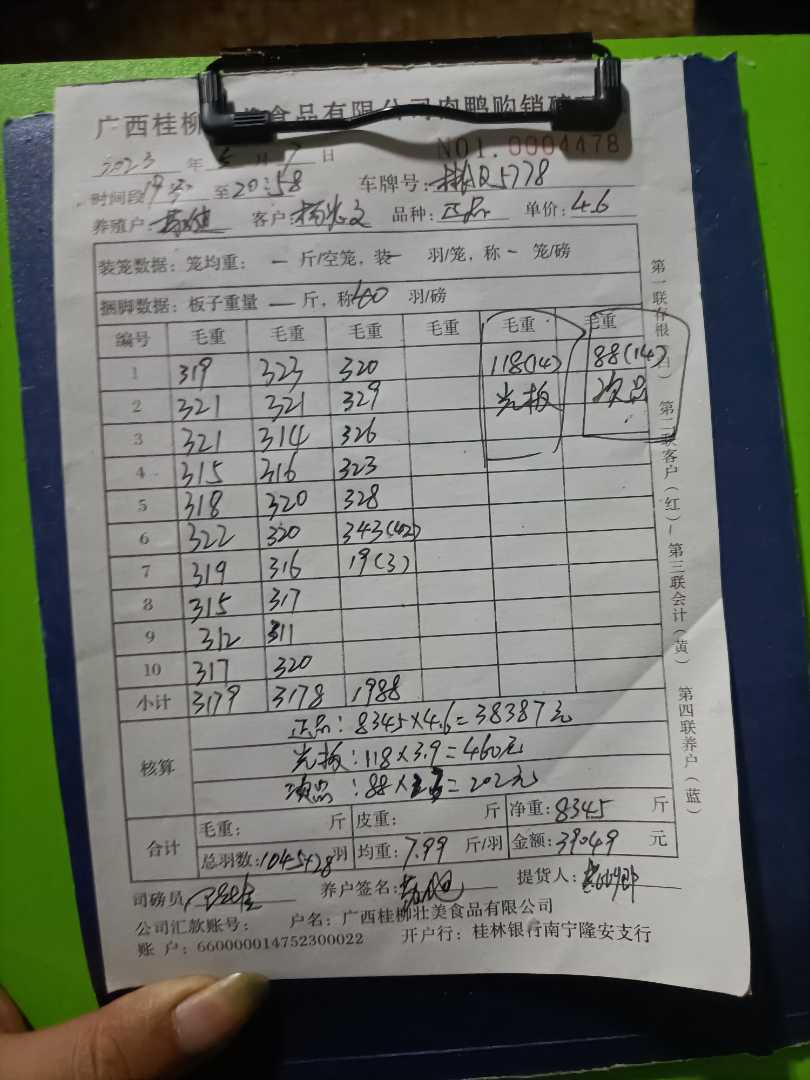 广西桂柳壮美食品有限公司肉鸭购销磅
NO1.0004478
2023 年 5 月 7 日
时间段 至20:58 车牌号: 5778
养殖户: 客户:杨 文 品种:正品 单价:4.6
装笼数据:笼均重: — 斤/空笼,装— 羽/笼,称— 笼/磅
捆脚数据:板子重量 — 斤,称 羽/磅
编号 毛重 毛重 毛重 毛重 毛重 毛重
1 319 323 320 118(14) 88(14)
2 321 321 329 光板 次品
3 321 314 326
4 315 316 323
5 318 320 328
6 322 320 343(42)
7 319 316 19(3)
8 315 317
9 312 311
10 317 320
小计 3179 3178 1988
核算
正品:8345×4.6=38387元
光板:118×3.9=460元
次品:88×2.3=202元
合计 毛重: 斤 皮重: 斤 净重:8345 斤
总羽数:1045+28羽 均重:7.99 斤/羽 金额:39049 元
司磅员 养户签名: 提货人:
公司汇款账号: 户名:广西桂柳壮美食品有限公司
账 户:660000014752300022 开户行:桂林银行南宁隆安支行
第一联存根(白) 第二联客户(红) 第三联会计(黄) 第四联养户(蓝)